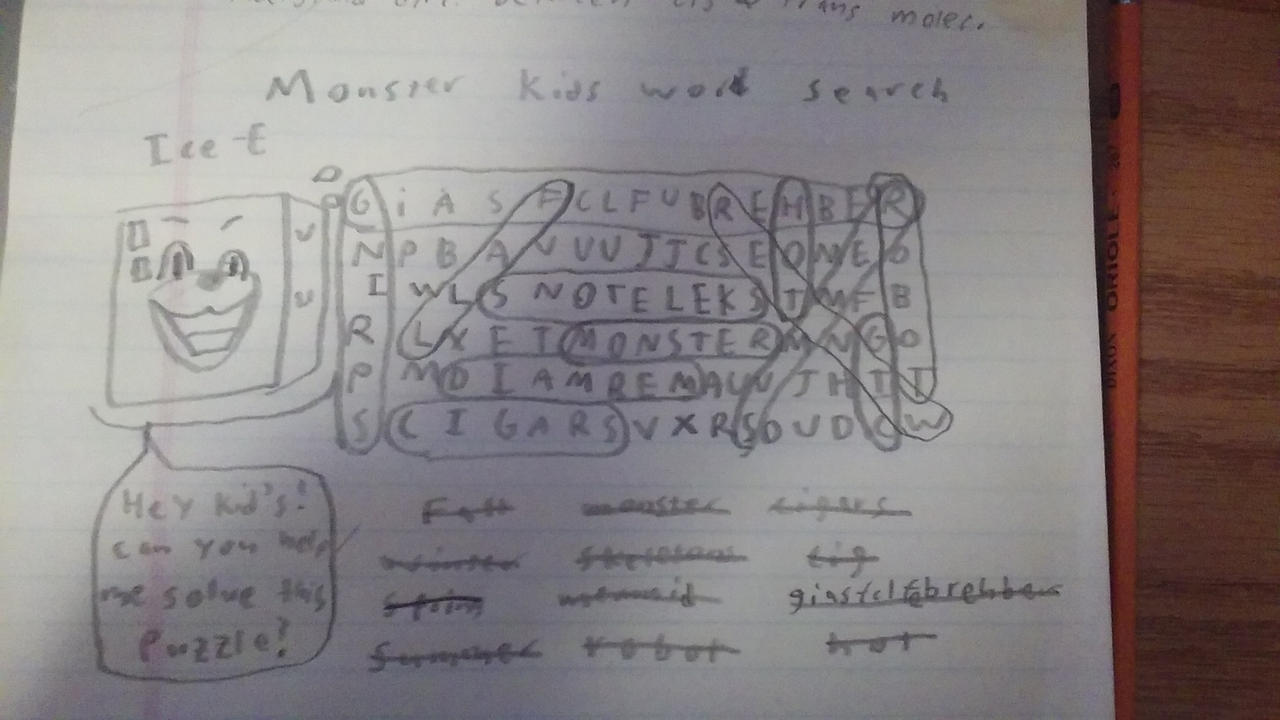 between cis & trans molec.
Monster Kids word search
Ice-E
G i A S F C L F U B R E H B F R
N P B A V V V J J C S E O M E O
I W L S N O T E L E K S T M F B
R L X E T M O N S T E R M N G O
P M D I A M R E M A U V J H I T
S C I G A R S V X R S O U D C W
Hey Kid's!
can you help
me solve this
Puzzle?
Fall monster cigars
winter skeletons cig
spring mermaid
summer robot hot
ORIOLE